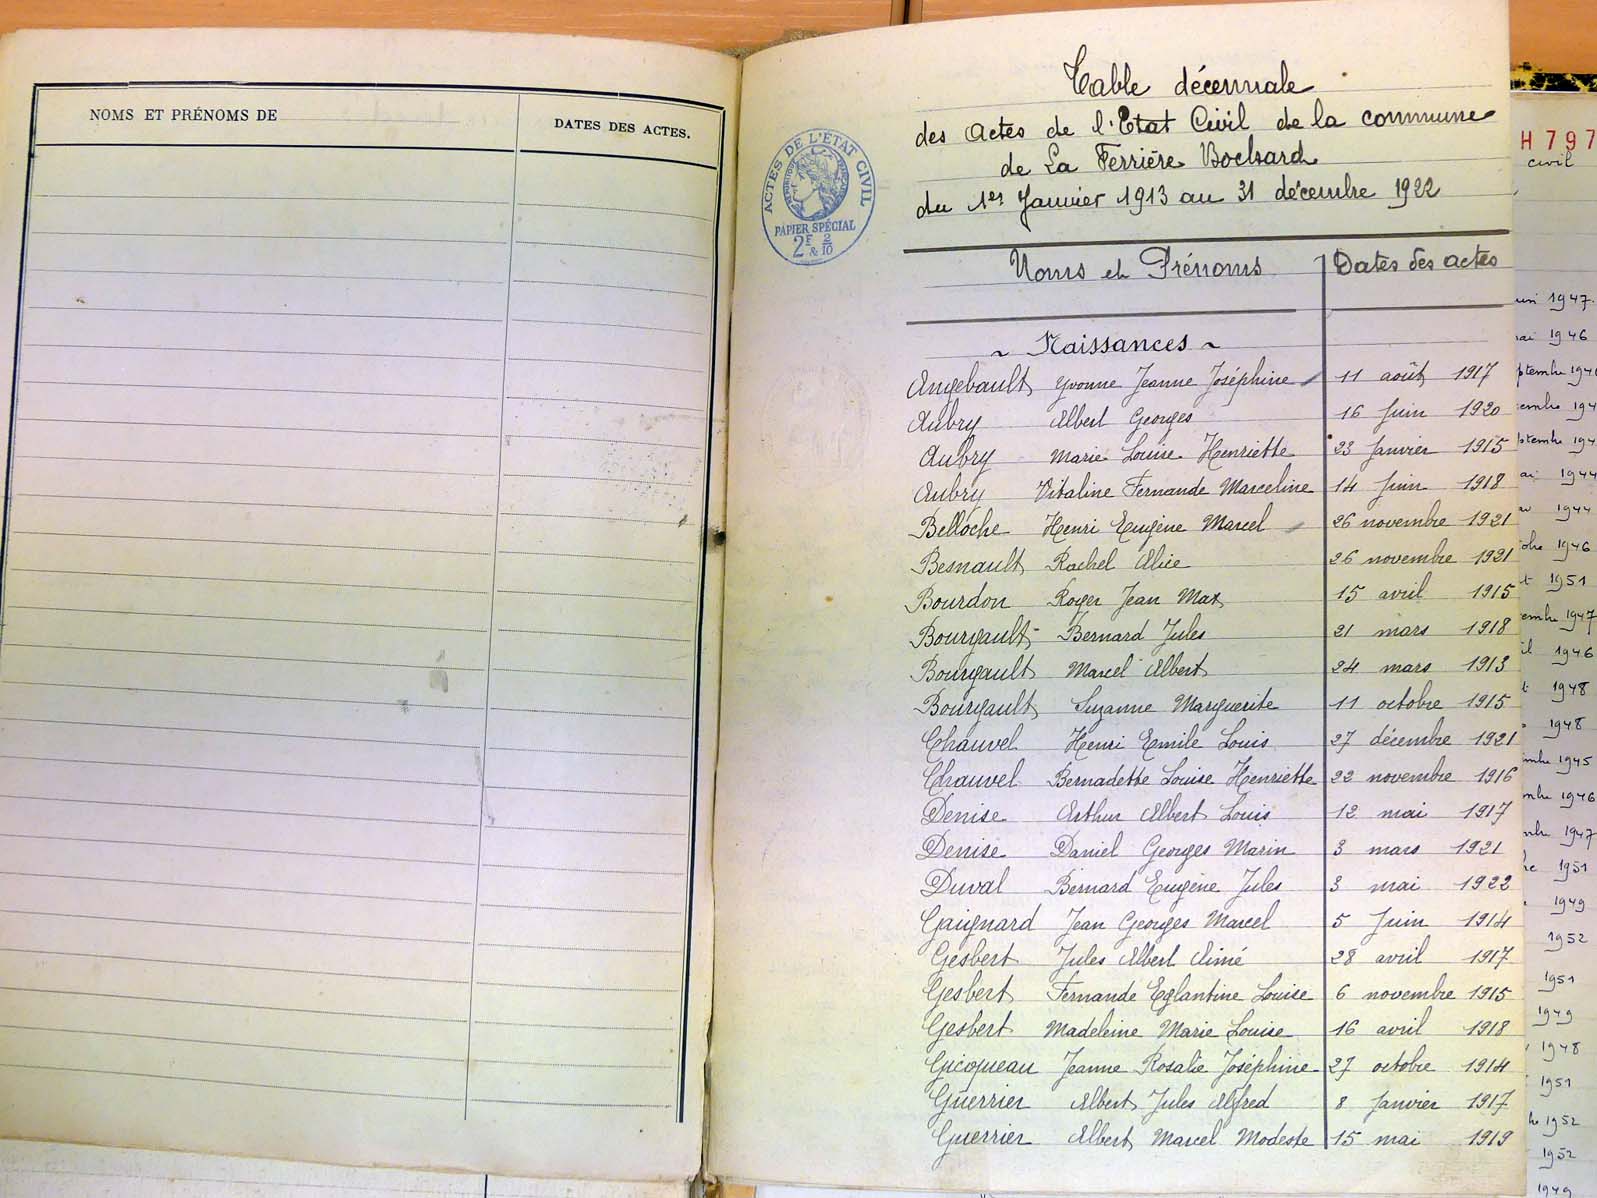 NOMS ET PRÉNOMS DE
DATES DES ACTES.
ACTES DE L'ÉTAT CIVIL
PAPIER SPÉCIAL
2F & 2/10
Table décennale
des Actes de l'Etat Civil de la commune
de La Ferrière Bochard
du 1er Janvier 1913 au 31 décembre 1922
Noms et Prénoms Dates des actes
~ Naissances ~
Angebault Yvonne Jeanne Joséphine 11 août 1917
Aubry Albert Georges 16 Juin 1920
Aubry Marie Louise Henriette 23 Janvier 1915
Aubry Vitaline Fernande Marceline 14 Juin 1918
Belloche Henri Eugène Marcel 26 novembre 1921
Besnault Rachel Alice 26 novembre 1921
Bourdon Roger Jean Max 15 avril 1915
Bourgault Bernard Jules 21 mars 1918
Bourgault Marcel Albert 24 mars 1913
Bourgault Suzanne Marguerite 11 octobre 1915
Chauvel Henri Emile Louis 27 décembre 1921
Chauvel Bernadette Louise Henriette 22 novembre 1916
Denise Arthur Albert Louis 12 mai 1917
Denise Daniel Georges Marin 3 mars 1921
Duval Bernard Eugène Jules 3 mai 1922
Gaignard Jean Georges Marcel 5 Juin 1914
Gesbert Jules Albert Aimé 28 avril 1917
Gesbert Fernande Eglantine Louise 6 novembre 1915
Gesbert Madeleine Marie Louise 16 avril 1918
Gicqueau Jeanne Rosalie Joséphine 27 octobre 1914
Guerrier Albert Jules Alfred 8 Janvier 1917
Guerrier Albert Marcel Modeste 15 mai 1919
H 797
civil
1947.
1946
1944
1944
1946
1951
1947
1946
1948
1948
1945
1946
1947
1951
1949
1952
1951
1949
1948
1951
1952
1952
1949